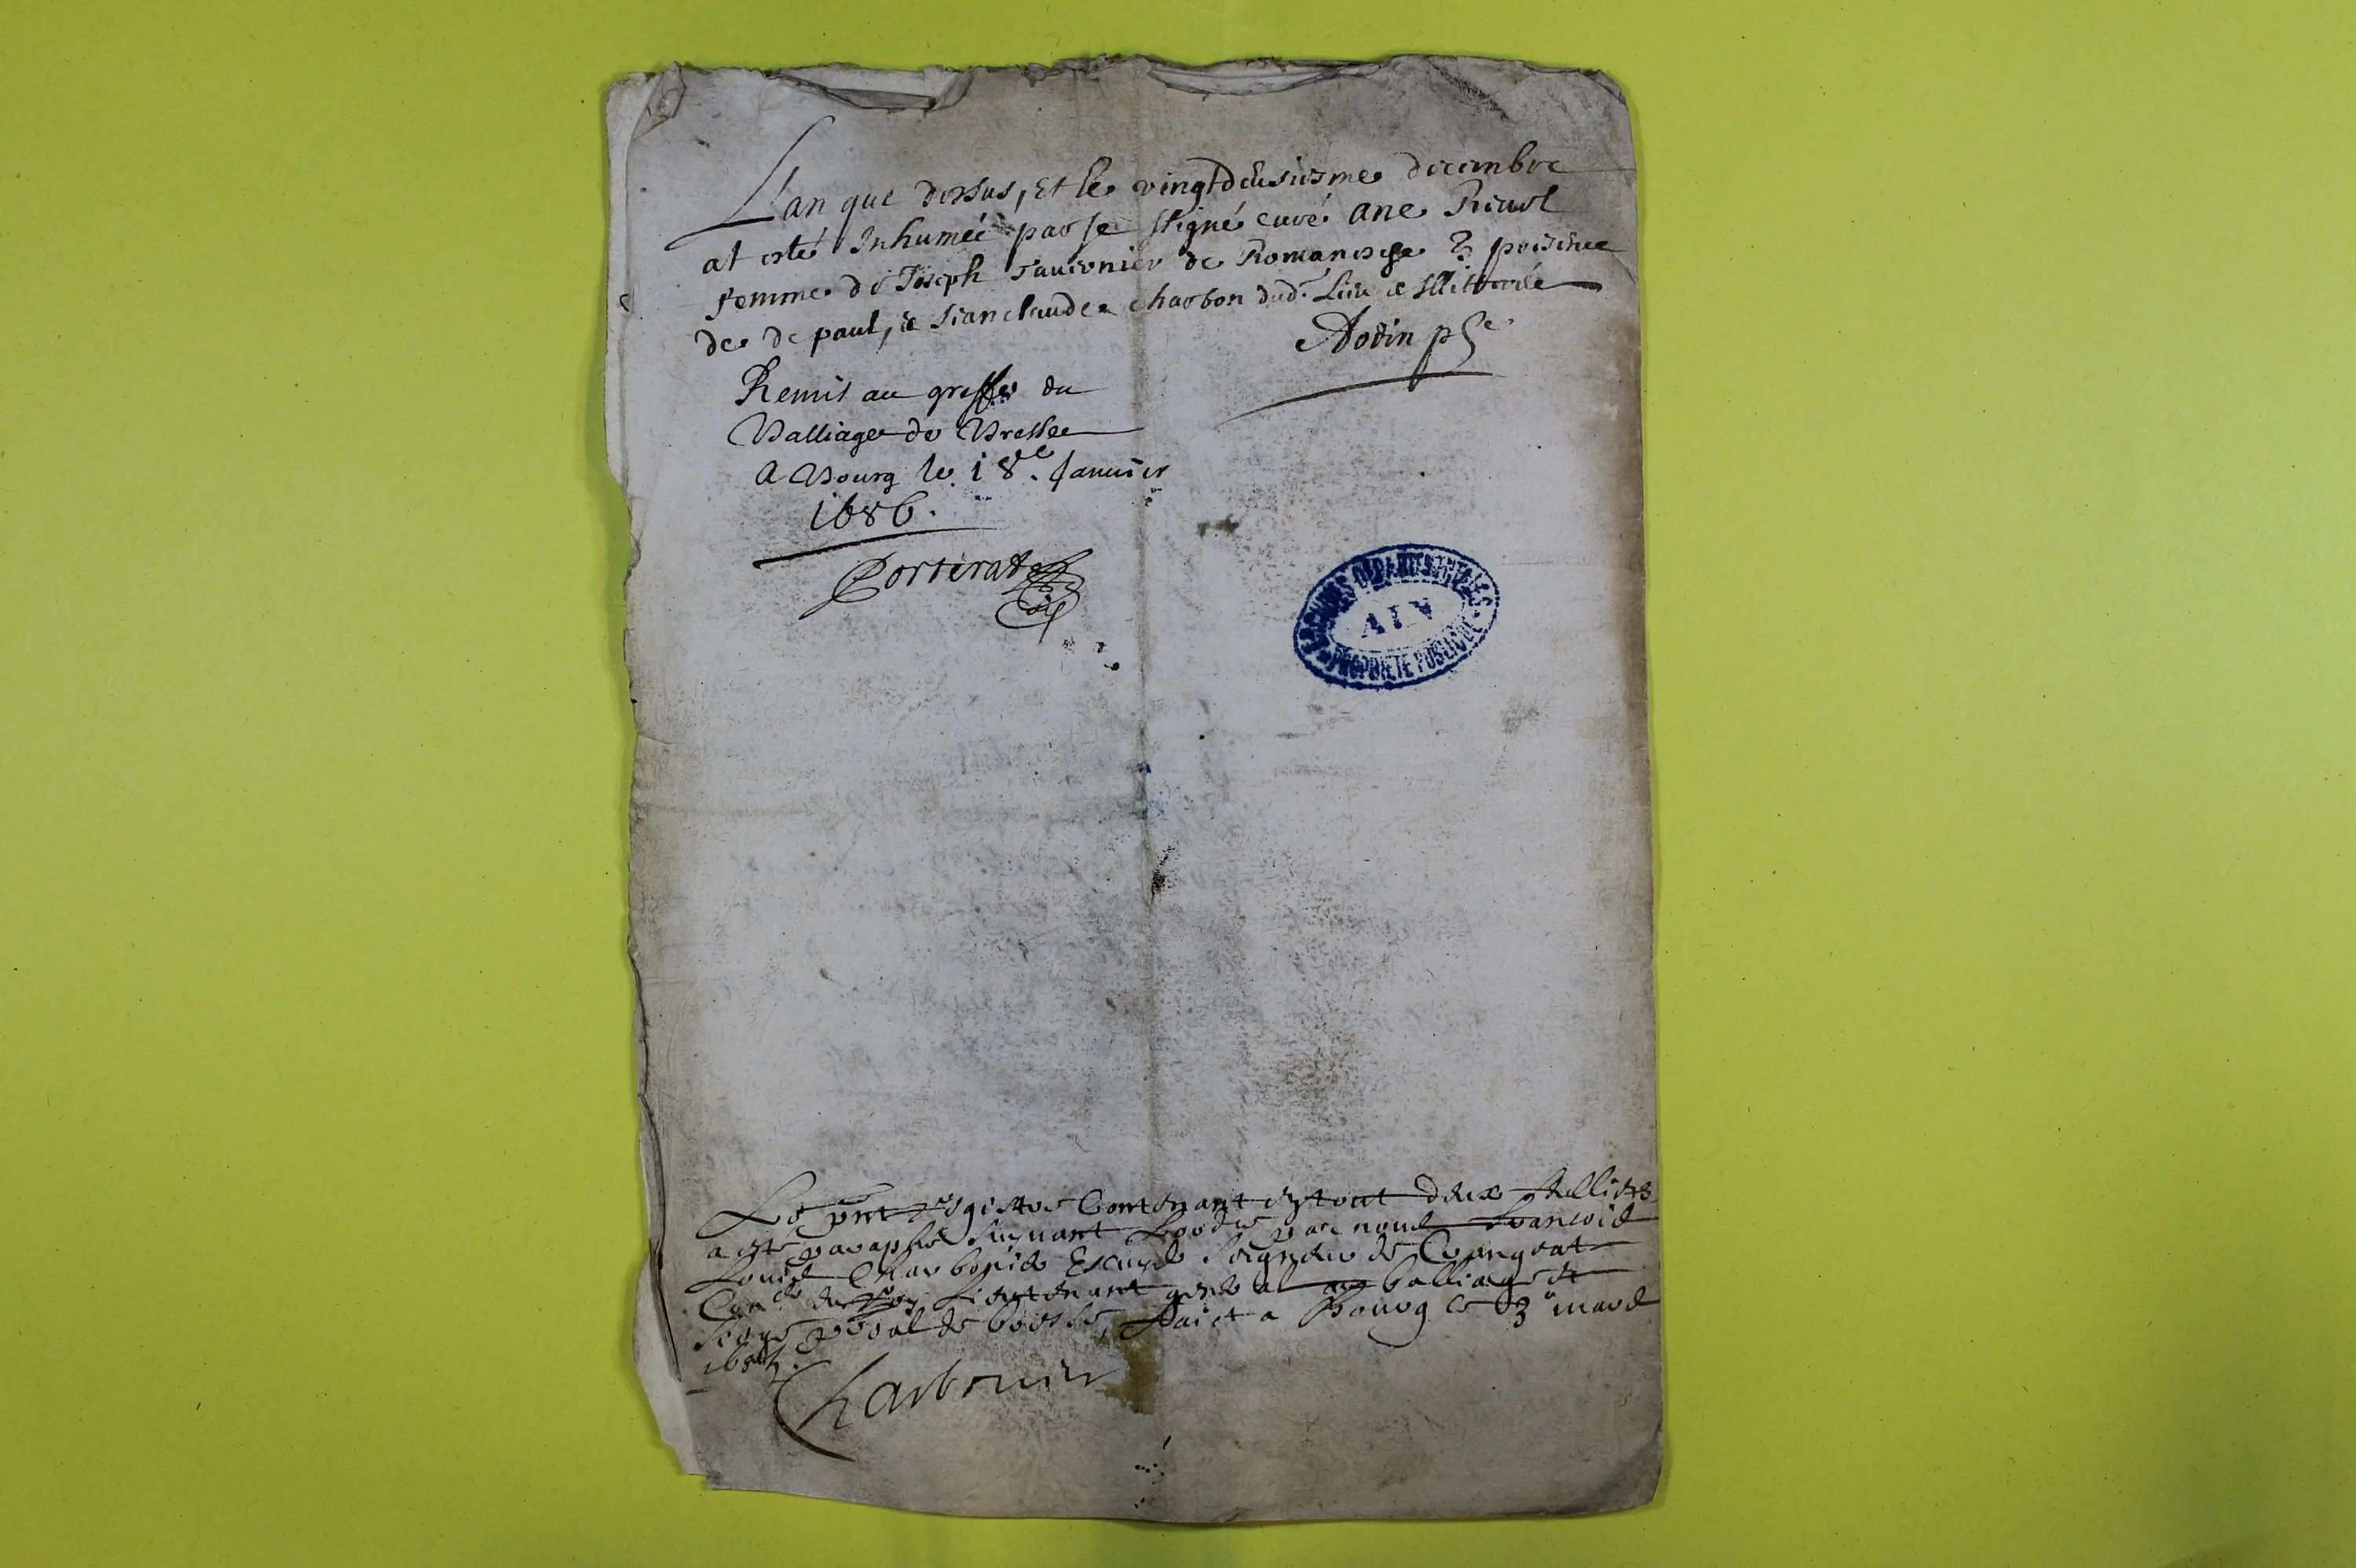 L'an que dessus, Et le vingtdeusiesme decembre
at esté Inhumée par le ssigné curé ane
femme de Joseph de Romanesche En presence
de de paul, & Jianclaude charbon dud. Lieu &
Remis au greffe du
Balliage de Bresse
A Bourg le 18e. Januier
1686.
Porterat
ARCHIVES DEPARTEMENTALES
AIN
PROPRIETE PUBLIQUE
Le pnt registre Contenant en tout deux
a esté paraphé suiuant Lordre par nous francois
Louis Charbonier Escuyer Seigneur de Crangeat
Coner du Roy Lieutenant general au balliage &
siege pral de bresse, faict a Bourg le 3e mars
Charbonier